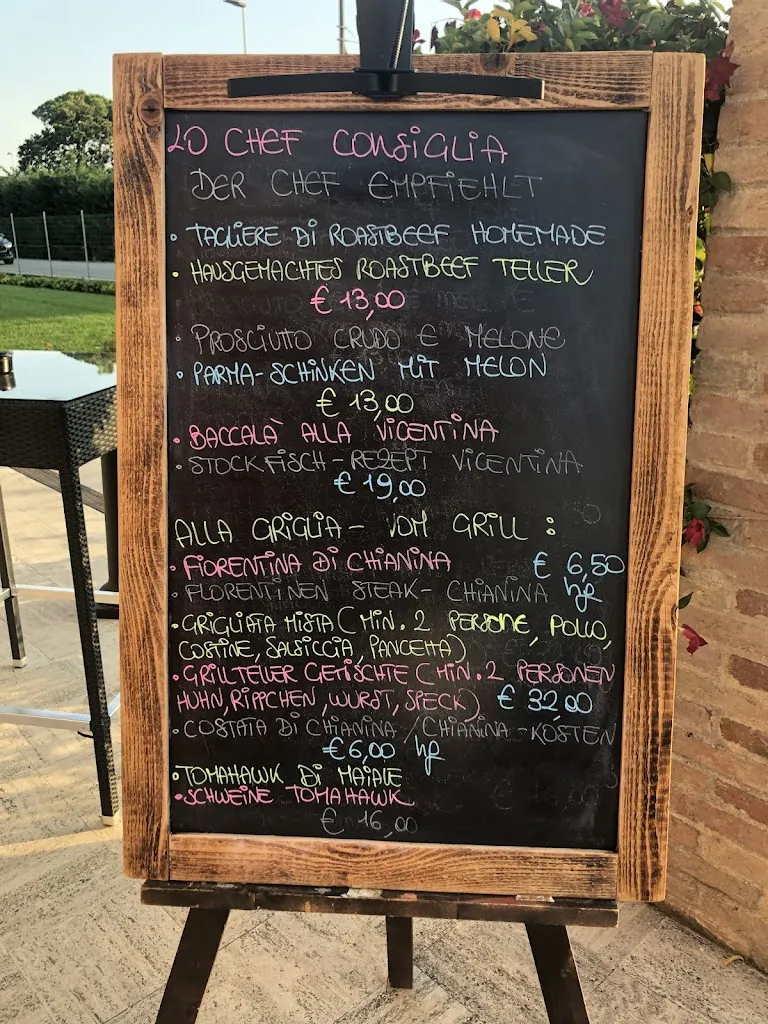 LO CHEF CONSIGLIA
DER CHEF EMPFIEHLT
• TAGLIERE DI ROASTBEEF HOMEMADE
• HAUSGEMACHTES ROASTBEEF TELLER
€ 13,00
• PROSCIUTTO CRUDO E MELONE
• PARMA-SCHINKEN MIT MELON
€ 13,00
• BACCALA' ALLA VICENTINA
• STOCKFISCH-REZEPT VICENTINA
€ 19,00
ALLA GRIGLIA - VOM GRILL :
• FIORENTINA DI CHIANINA € 6,50
• FLORENTINEN STEAK- CHIANINA hg
• GRIGLIATA MISTA (MIN. 2 PERSONE, POLLO,
COSTINE, SALSICCIA, PANCETTA)
• GRILLTELLER GEMISCHTE (MIN. 2 PERSONEN
HUHN, RIPPCHEN, WURST, SPECK) € 32,00
• COSTATA DI CHIANINA / CHIANINA - KOSTEN
€ 6,00 hg
• TOMAHAWK DI MAIALE
• SCHWEINE TOMAHAWK
€ 16,00